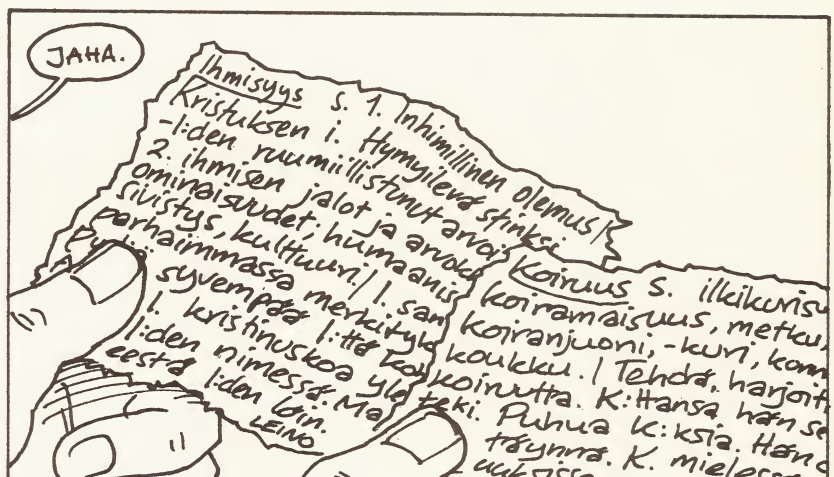 JAHA.
Ihmisyys s. 1. Inhimillinen olemus |
Kristuksen i. Hymyilevä sfinksi
-I:den ruumiillistunut arvoi
2. ihmisen jalot ja arvok
ominaisuudet; humaanis
sivistys, kulttuuri. | I. san
parhaimmassa merkityk
syvempää I:ttä ko
I. kristinuskoa yle
I:den nimessä. Ma
eestä I:den lain.
LEINO
Koiruus s. ilkikurisu
koiramaisuus, metku,
koiranjuoni, -kuri, konn
koukku. | Tehdä, harjoitt
koiruutta. K:ttansa hän se
teki. Puhua k:ksia. Hän o
täynnä. K. mielessä
uuksissa